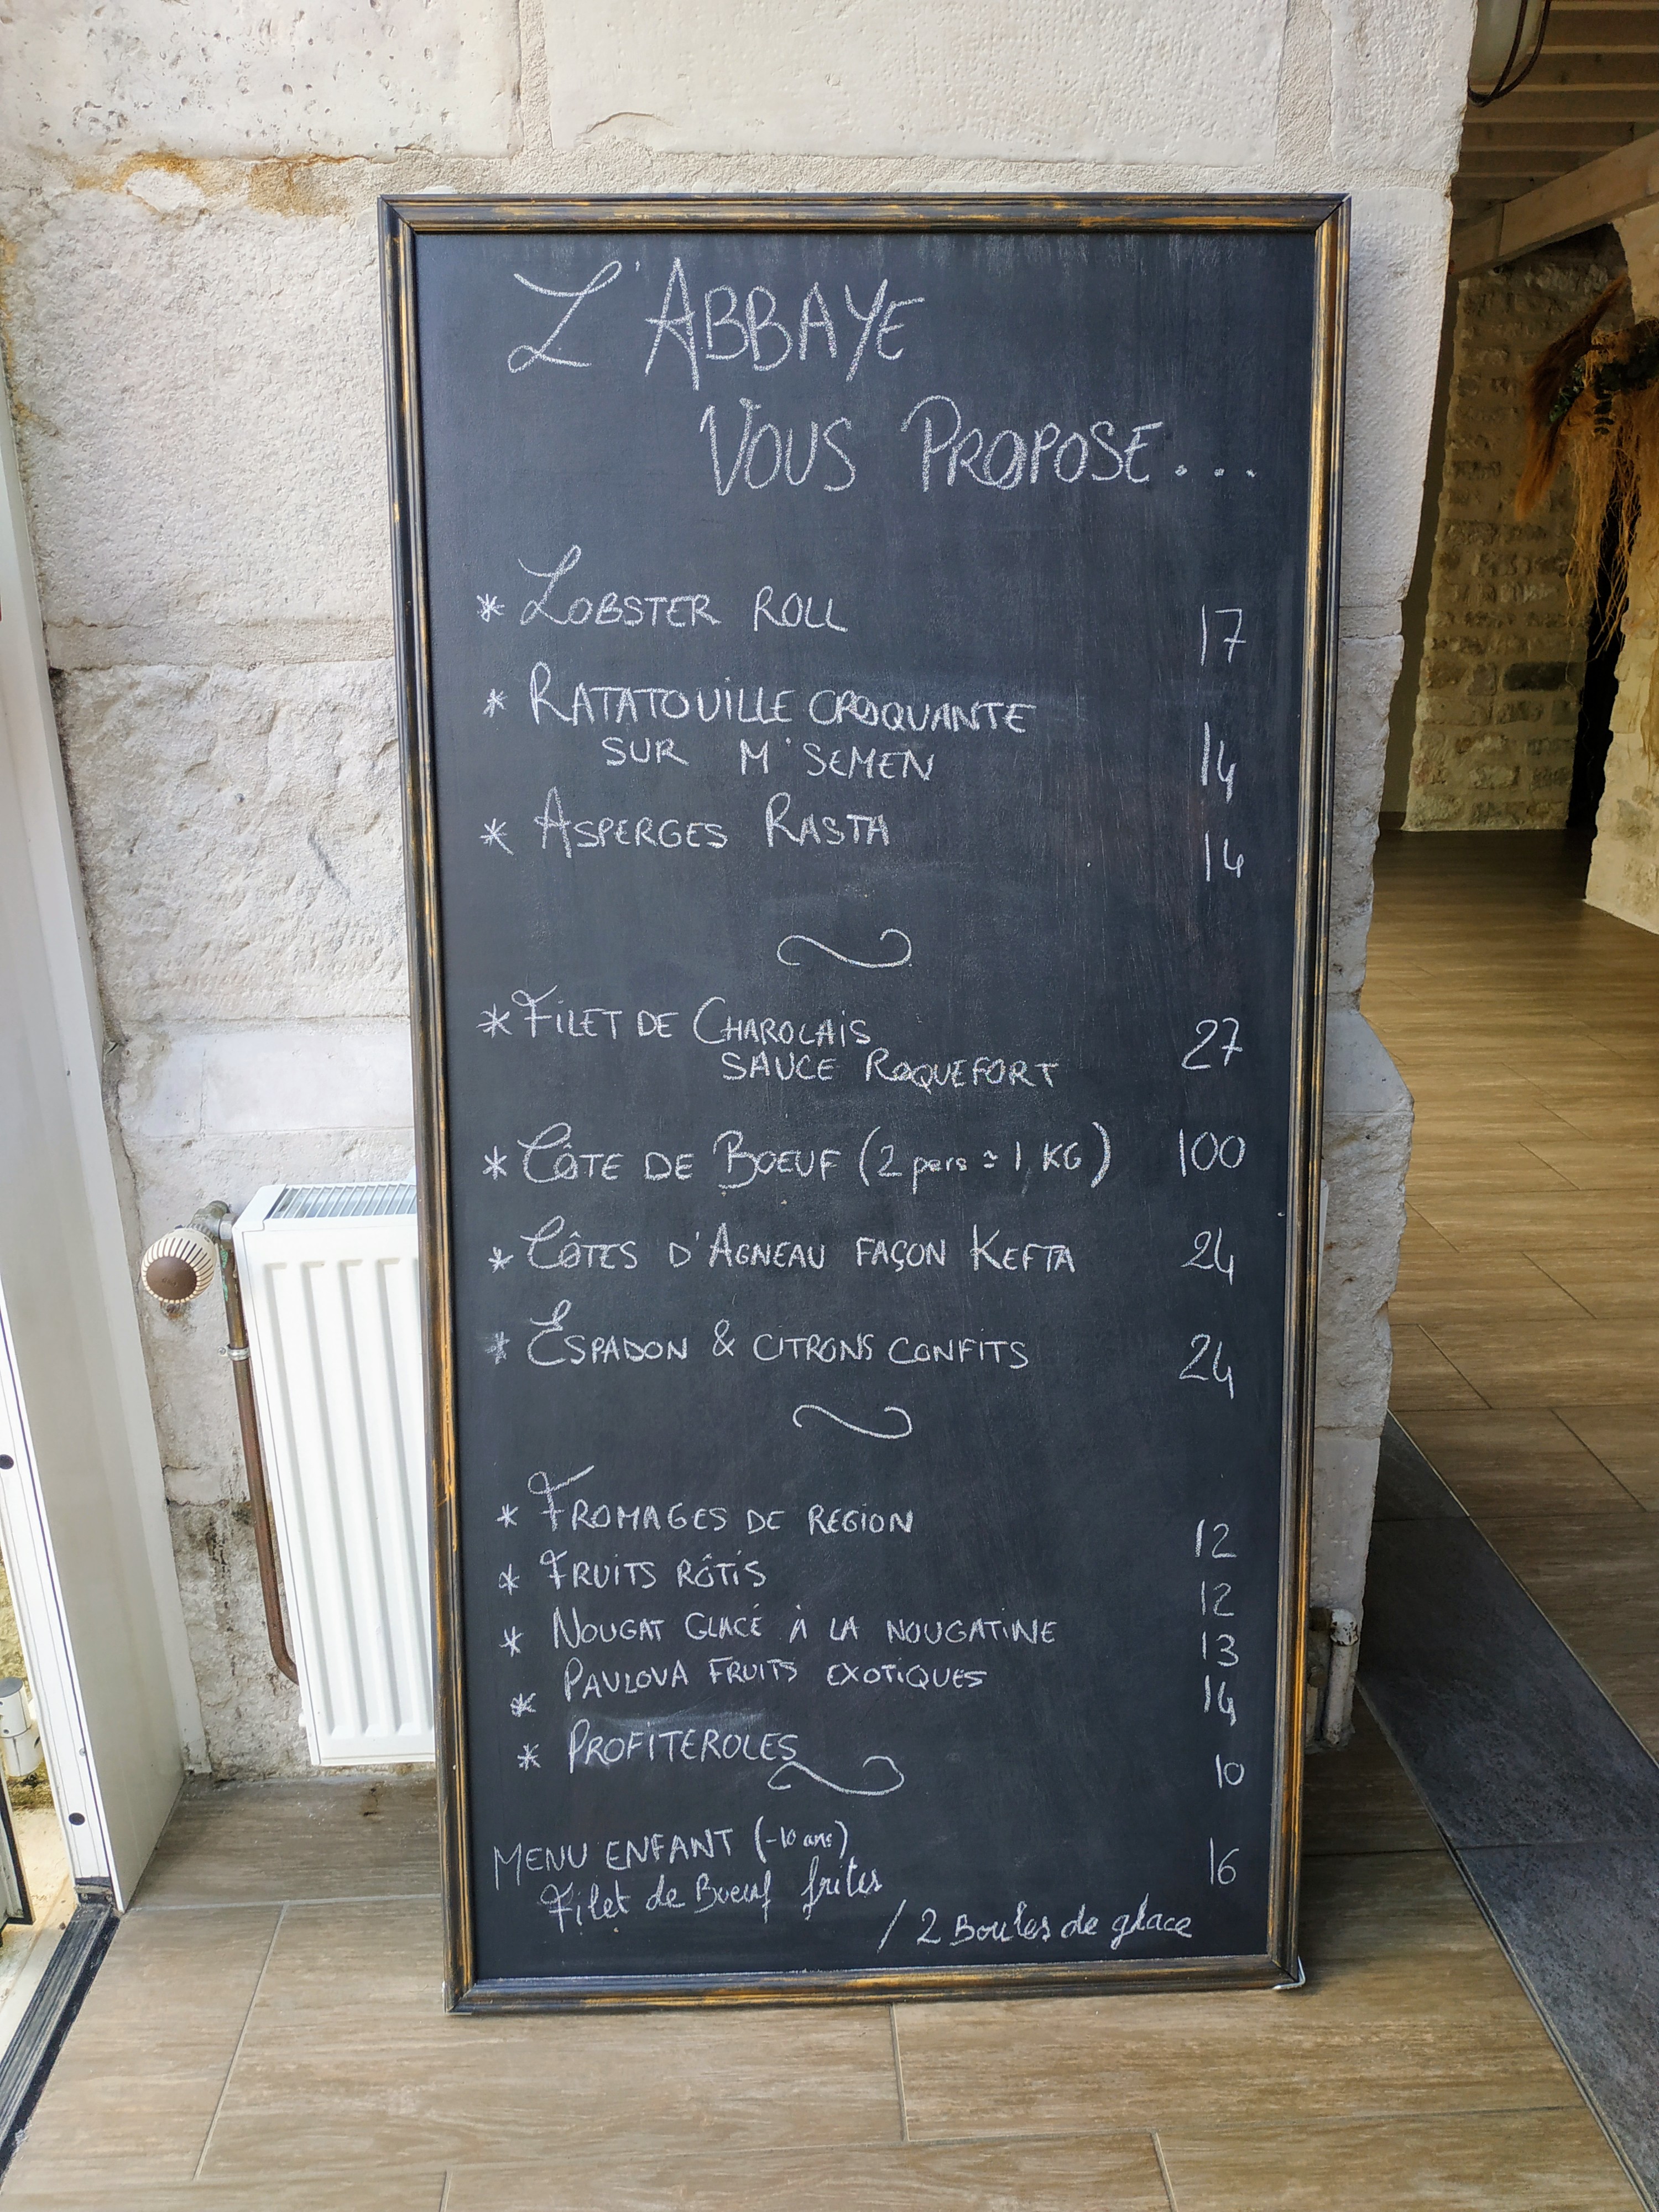 L'ABBAYE
VOUS PROPOSE...
* LOBSTER ROLL 17
* RATATOUILLE CROQUANTE
SUR M'SEMEN 14
* ASPERGES RASTA 14
* FILET DE CHAROLAIS
SAUCE ROQUEFORT 27
* CÔTE DE BOEUF (2 pers = 1 KG) 100
* CÔTES D'AGNEAU FAÇON KEFTA 24
* ESPADON & CITRONS CONFITS 24
* FROMAGES DE REGION 12
* FRUITS RÔTIS 12
* NOUGAT GLACÉ À LA NOUGATINE 13
* PAVLOVA FRUITS EXOTIQUES 14
* PROFITEROLES 10
MENU ENFANT (-10 ans) 16
Filet de Boeuf frites
/ 2 Boules de glace